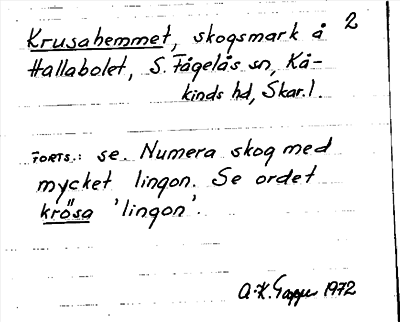 2
Krusahemmet, skogsmark å
Hallabolet, S. Fågelås sn, Kå-
kinds hd, Skar.l.
FORTS.: se. Numera skog med
mycket lingon. Se ordet
krösa 'lingon'.
A-K. 1972